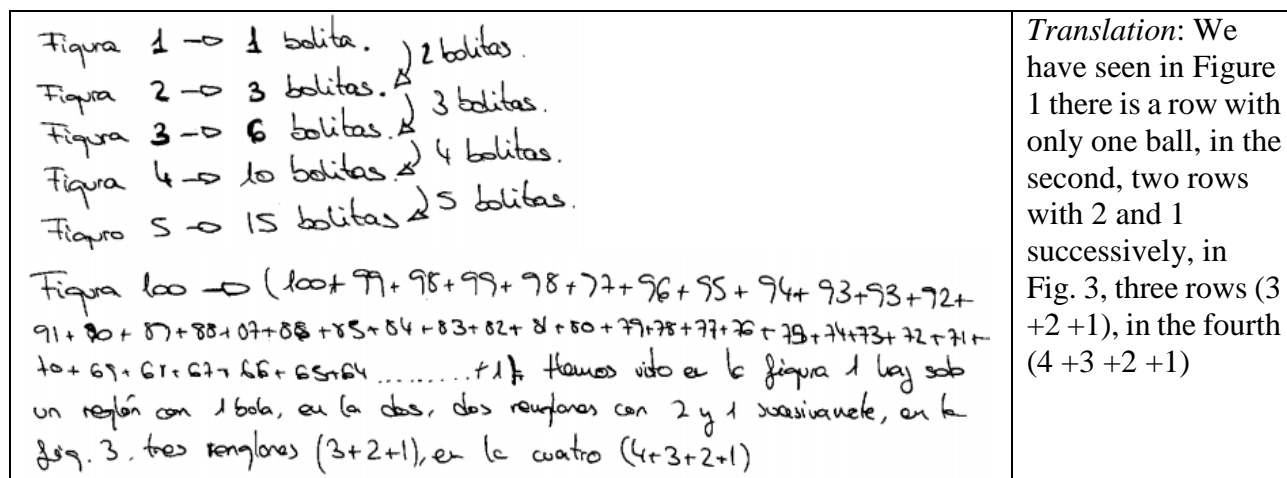 Figura 1 → 1 bolita.
2 bolitas.
Figura 2 → 3 bolitas.
3 bolitas.
Figura 3 → 6 bolitas.
4 bolitas.
Figura 4 → 10 bolitas
5 bolitas.
Figura 5 → 15 bolitas
Figura 100 → (100+99+98+99+98+77+96+95+94+93+93+92+
91+90+89+88+07+88+85+84+83+82+81+80+79+78+77+76+75+74+73+72+71+
70+69+68+67+66+65+64.........+1). Hemos vito en la figura 1 hay solo
un renglón con 1 bola, en la dos, dos renglones con 2 y 1 , en la
fig. 3. tres renglones (3+2+1), en la cuatro (4+3+2+1)
Translation: We
have seen in Figure
1 there is a row with
only one ball, in the
second, two rows
with 2 and 1
successively, in
Fig. 3, three rows (3
+2 +1), in the fourth
(4 +3 +2 +1)